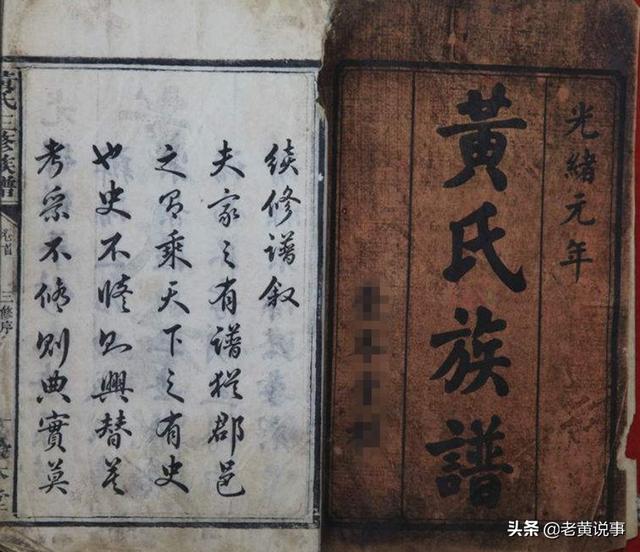 光緒元年
黃氏族譜
续修譜叙
夫家之有譜猶郡邑
之有乘天下之有史
也史不脩则興替莫
考乘不脩则典實莫
黃氏三修族譜
卷首
三修序
头条 @老黄说事